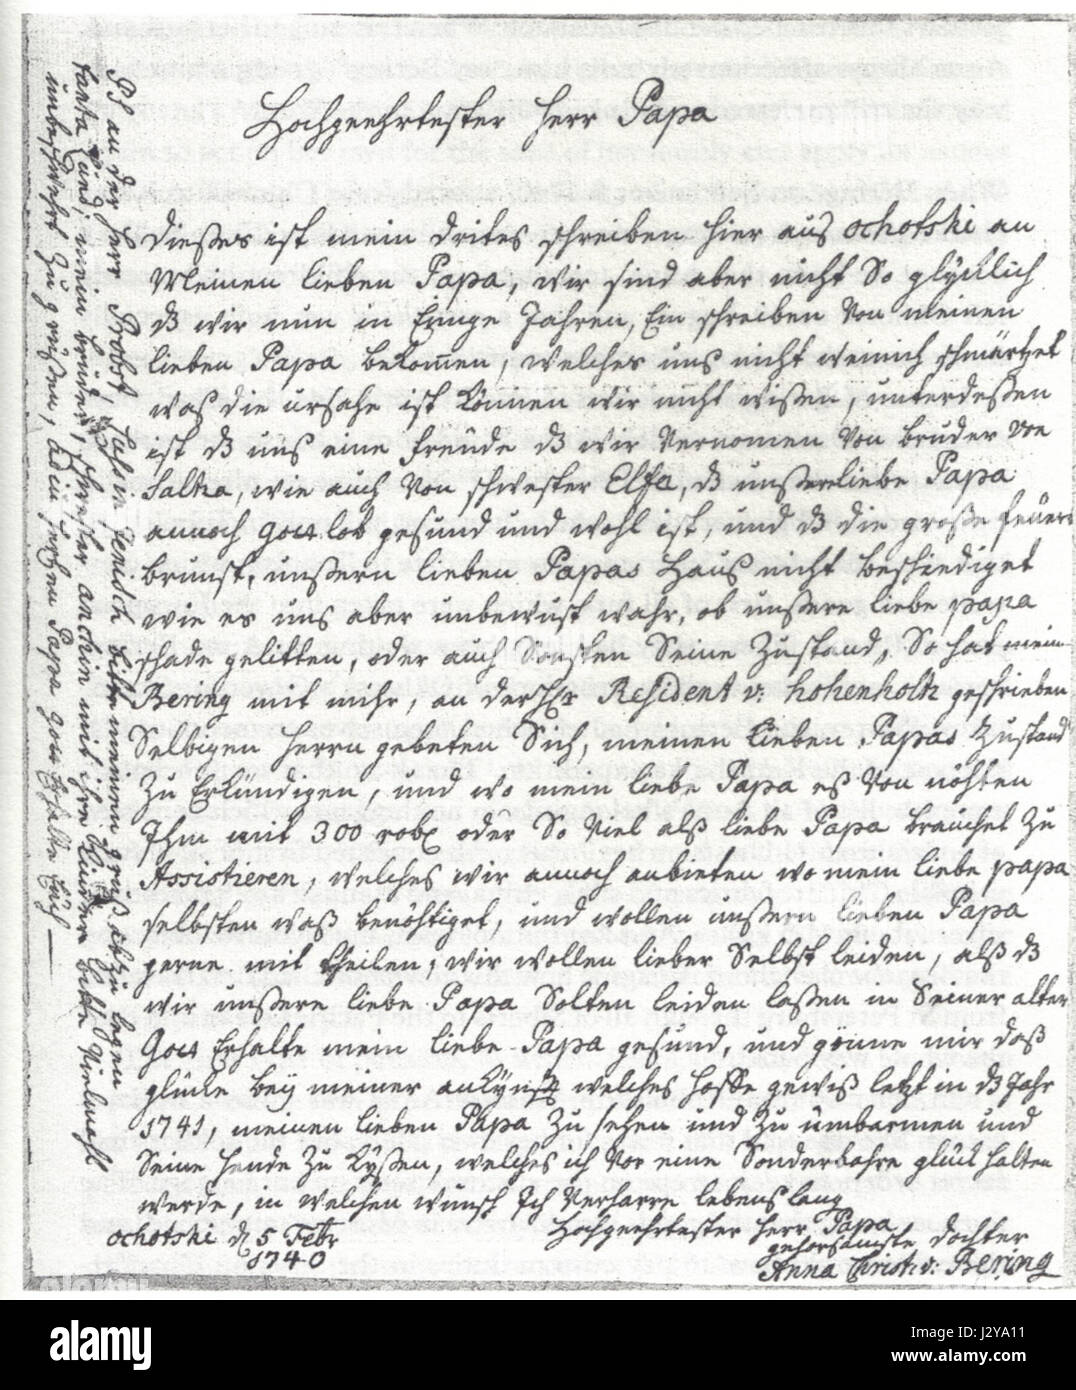 Hochgeehrtester Herr Papa
Dießes ist mein drites schreiben hier aus ochotski an
Meinen lieben Papa, wir sind aber nicht So glyklich
dß wir nun in Einige Jahren, Ein schreiben von meinen
lieben Papa bekomen, welches uns nicht weinich schmärtzet
was die ursahe ist können wir nicht wißen, unterdeßen
ist dß uns eine freüde dß wir vernomen von bruder von
Saltza, wie auch von schwester Elsa, dß unßerliebe Papa
annoch gott lob gesund und wohl ist, und dß die große feüers
brunst, unßern lieben Papas Haus nicht beschediget
wie es uns aber unbewust wahr, ob unßere liebe papa
schade gelitten, oder auch Sonsten Seine Zustand, So hat mein
Bering mit mihr, an der Hr Resident v: hohenholtz geschrieben
Selbigen Herrn gebeten Sich, meinen lieben Papas Zustand
Zu Erkündigen, und wo mein liebe Papa eß von nöhten
Ihm mit 300 rob oder So viel alß liebe Papa brauchet Zu
Assistieren, welches wir annoch anbieten wo mein liebe papa
selbsten waß benöhtiget, und wollen unßern lieben Papa
gerne mit theilen, wir wollen lieber Selbst leiden, alß dß
wir unßere liebe Papa Solten leiden laßen in Seiner alter
Gott Erhalte mein liebe Papa gesund, und gönne mir daß
glücke beÿ meiner ankunft welches hoffe gewiß letzt in dß Jahr
1741, meinen lieben Papa Zu sehen und Zu umbarmen und
Seine hende Zu Kyßen, welches ich vor eine Sonderbahre glück halten
werde, in welchen wunsch Ich verharre lebenslang
Hochgeehrtester Herr Papa
ochotski d 5 Febr
1740
gehorsamste dochter
Anna Christi: v: Bering
PS an der Herr Probst, Jenisch bitte meinen gruß abzu legen
tanta mein bruder, schwester anchin mit ihre kinder bitte vielmahl
unbeschwert Zu grüßen, adein hertzen Papa gott Erhalte Euch
alamy
www.alamy.com
J2YA11